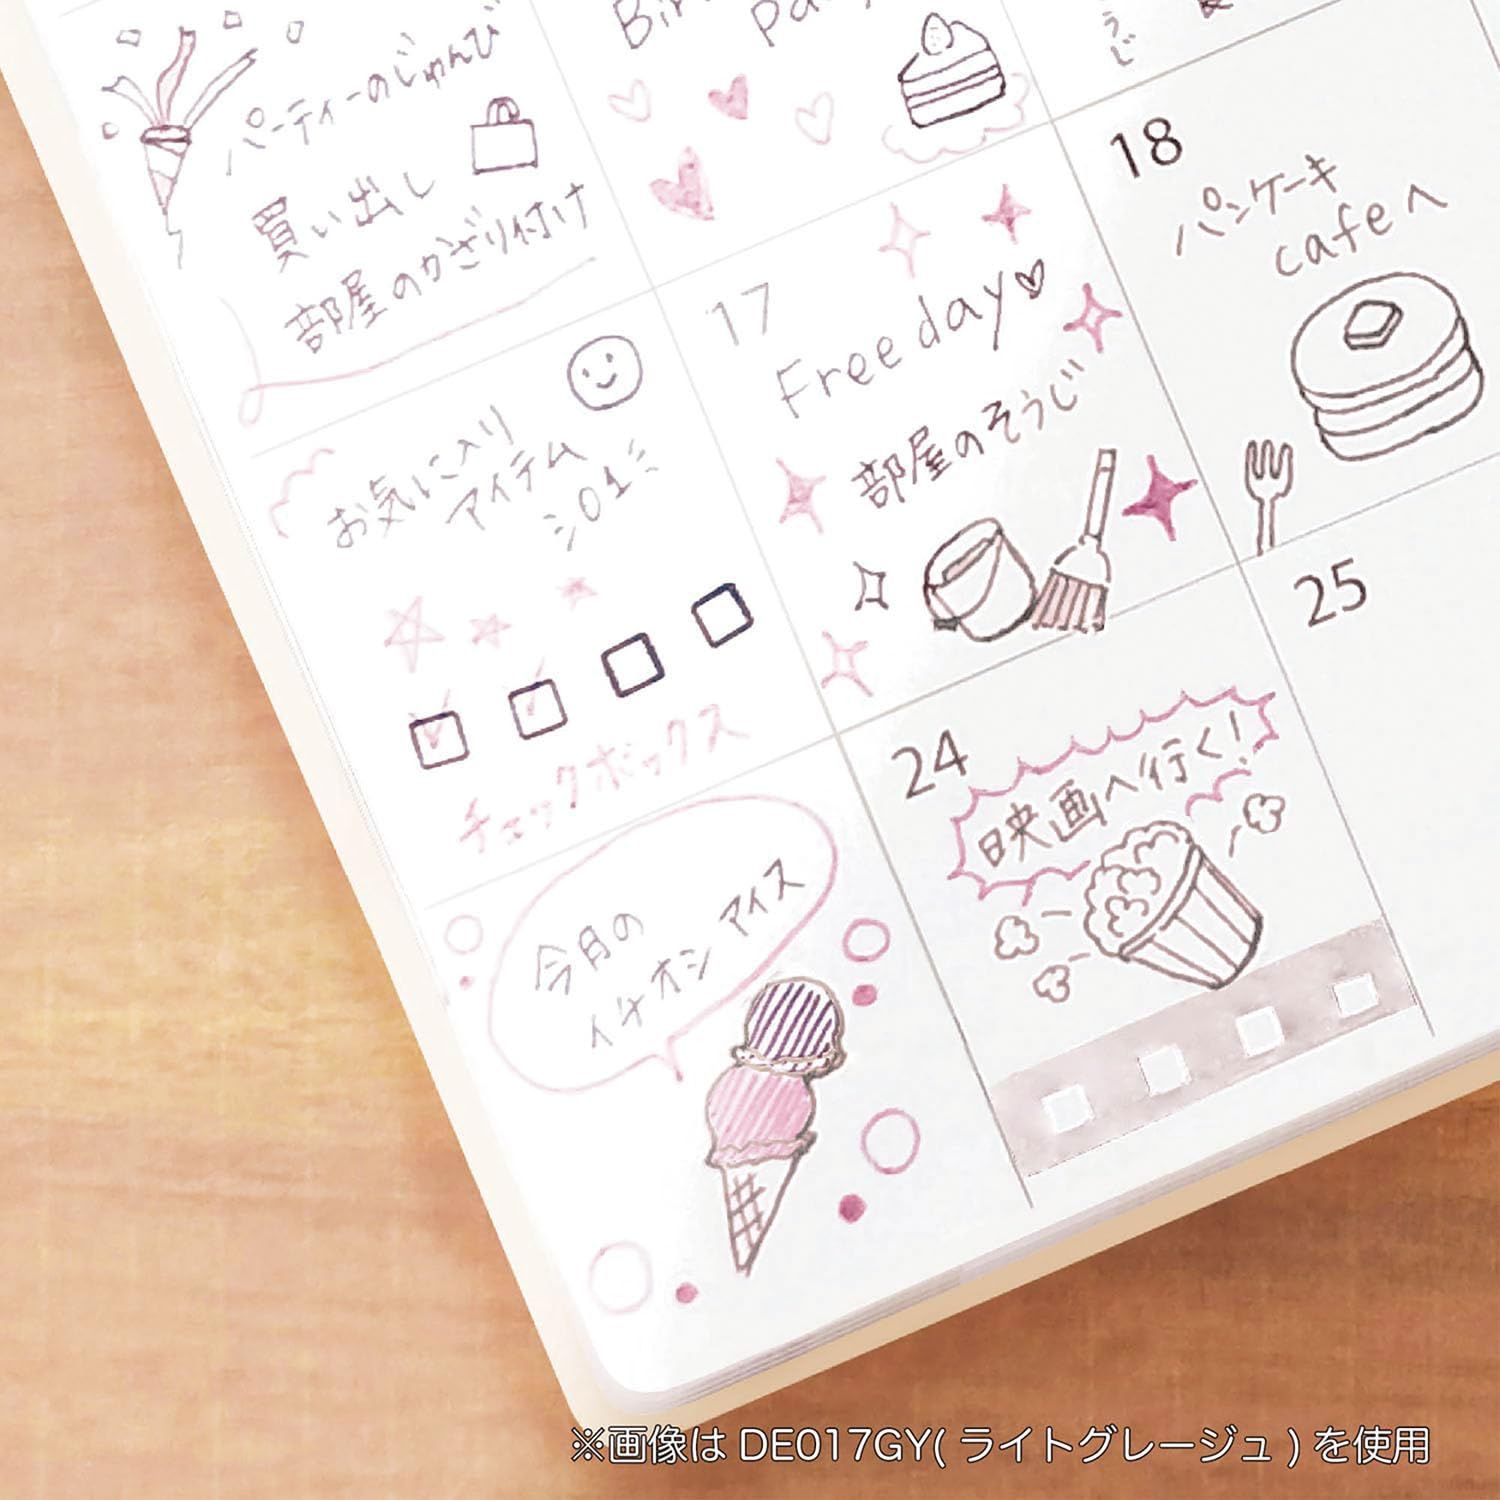 パーティーのじゅんび
買い出し
部屋のかざり付け
お気に入り
アイテム
チェックボックス
今月の
イチオシ アイス
17
Free day♡
部屋のそうじ
18
パンケーキ
cafeへ
24
映画へ行く!
25
※画像は DE017GY( ライトグレージュ ) を使用